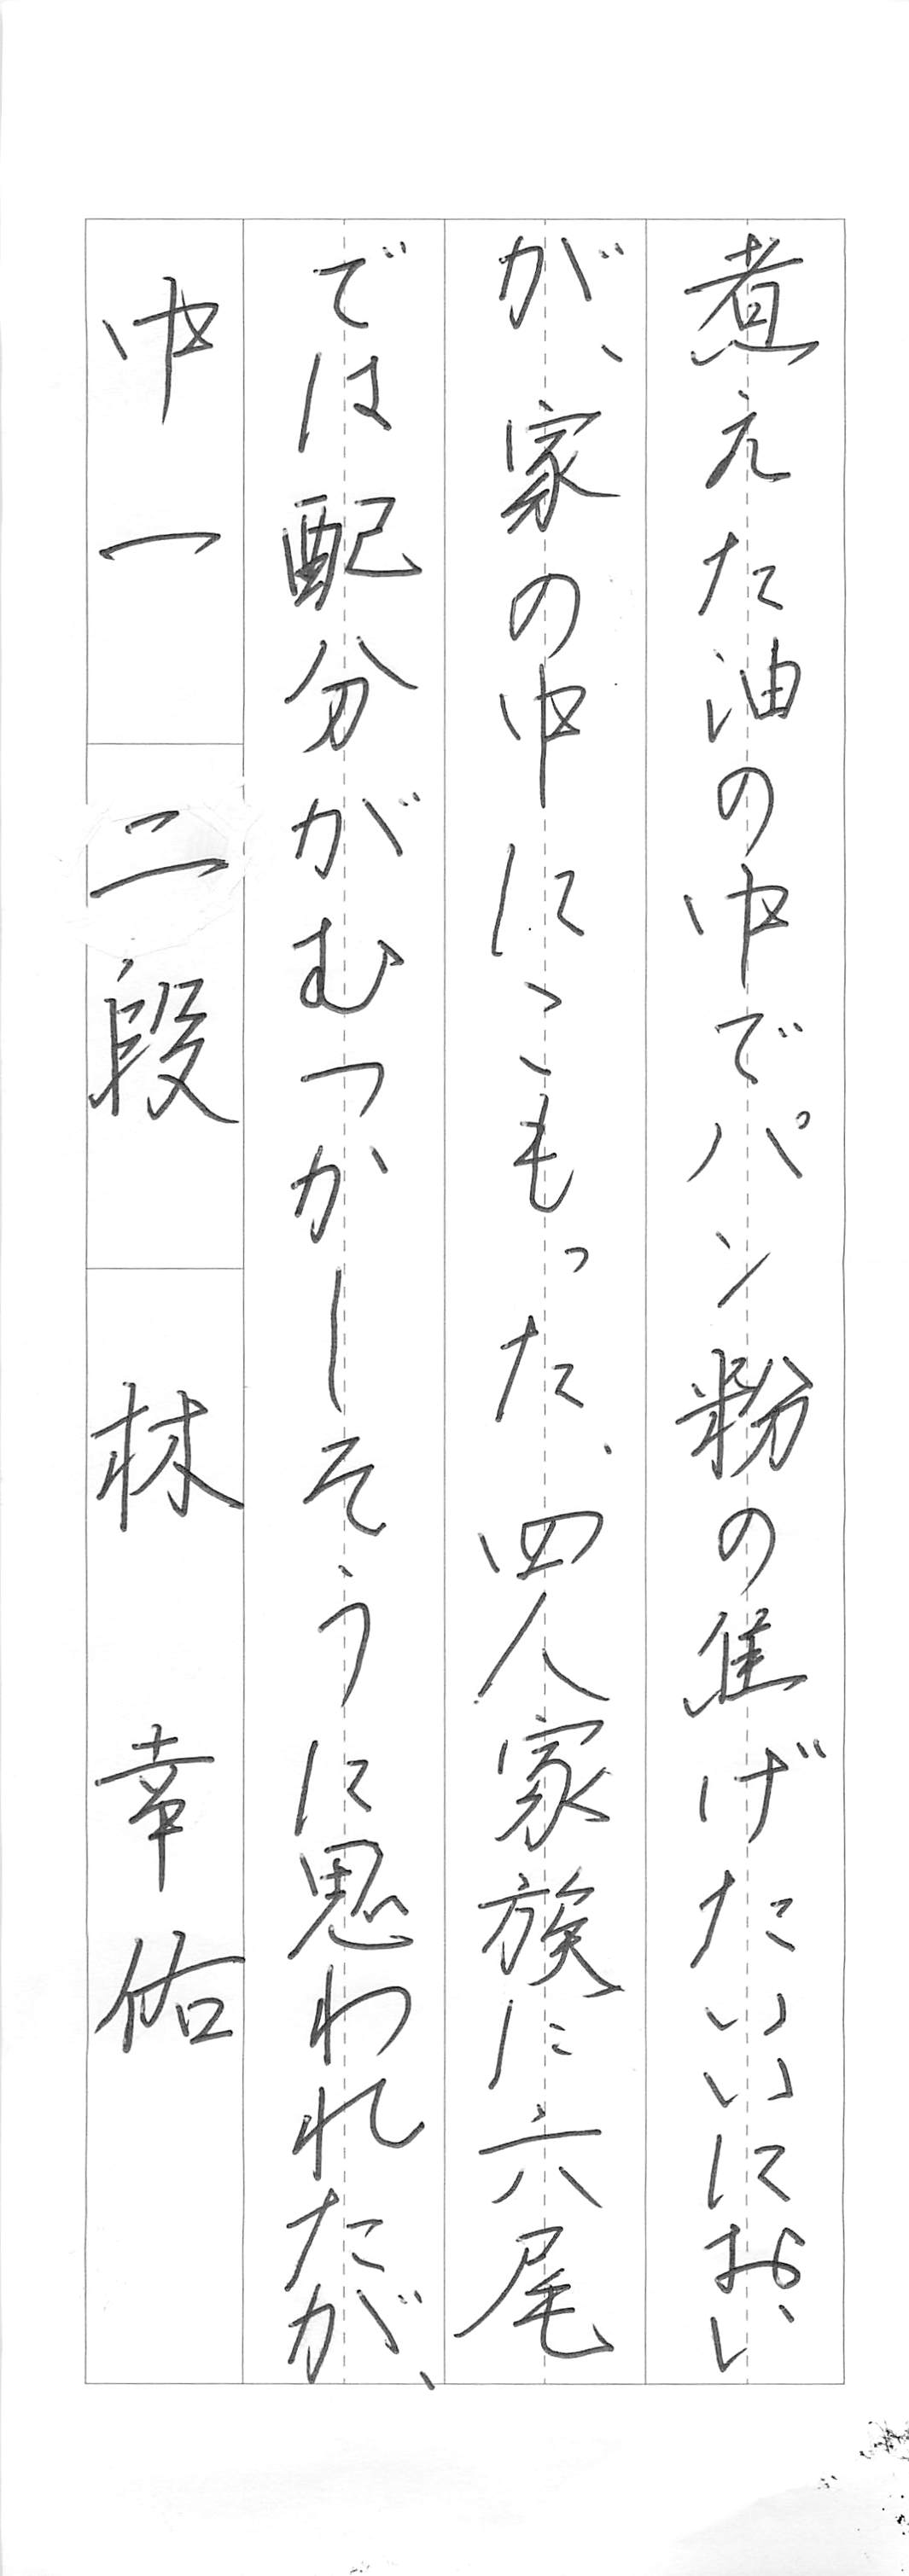 煮えた油の中でパン粉の焦げたいいにおい
が、家の中にこもった。四人家族に六尾
では配分がむつかしそうに思われたが、
中一 二段 林 幸佑